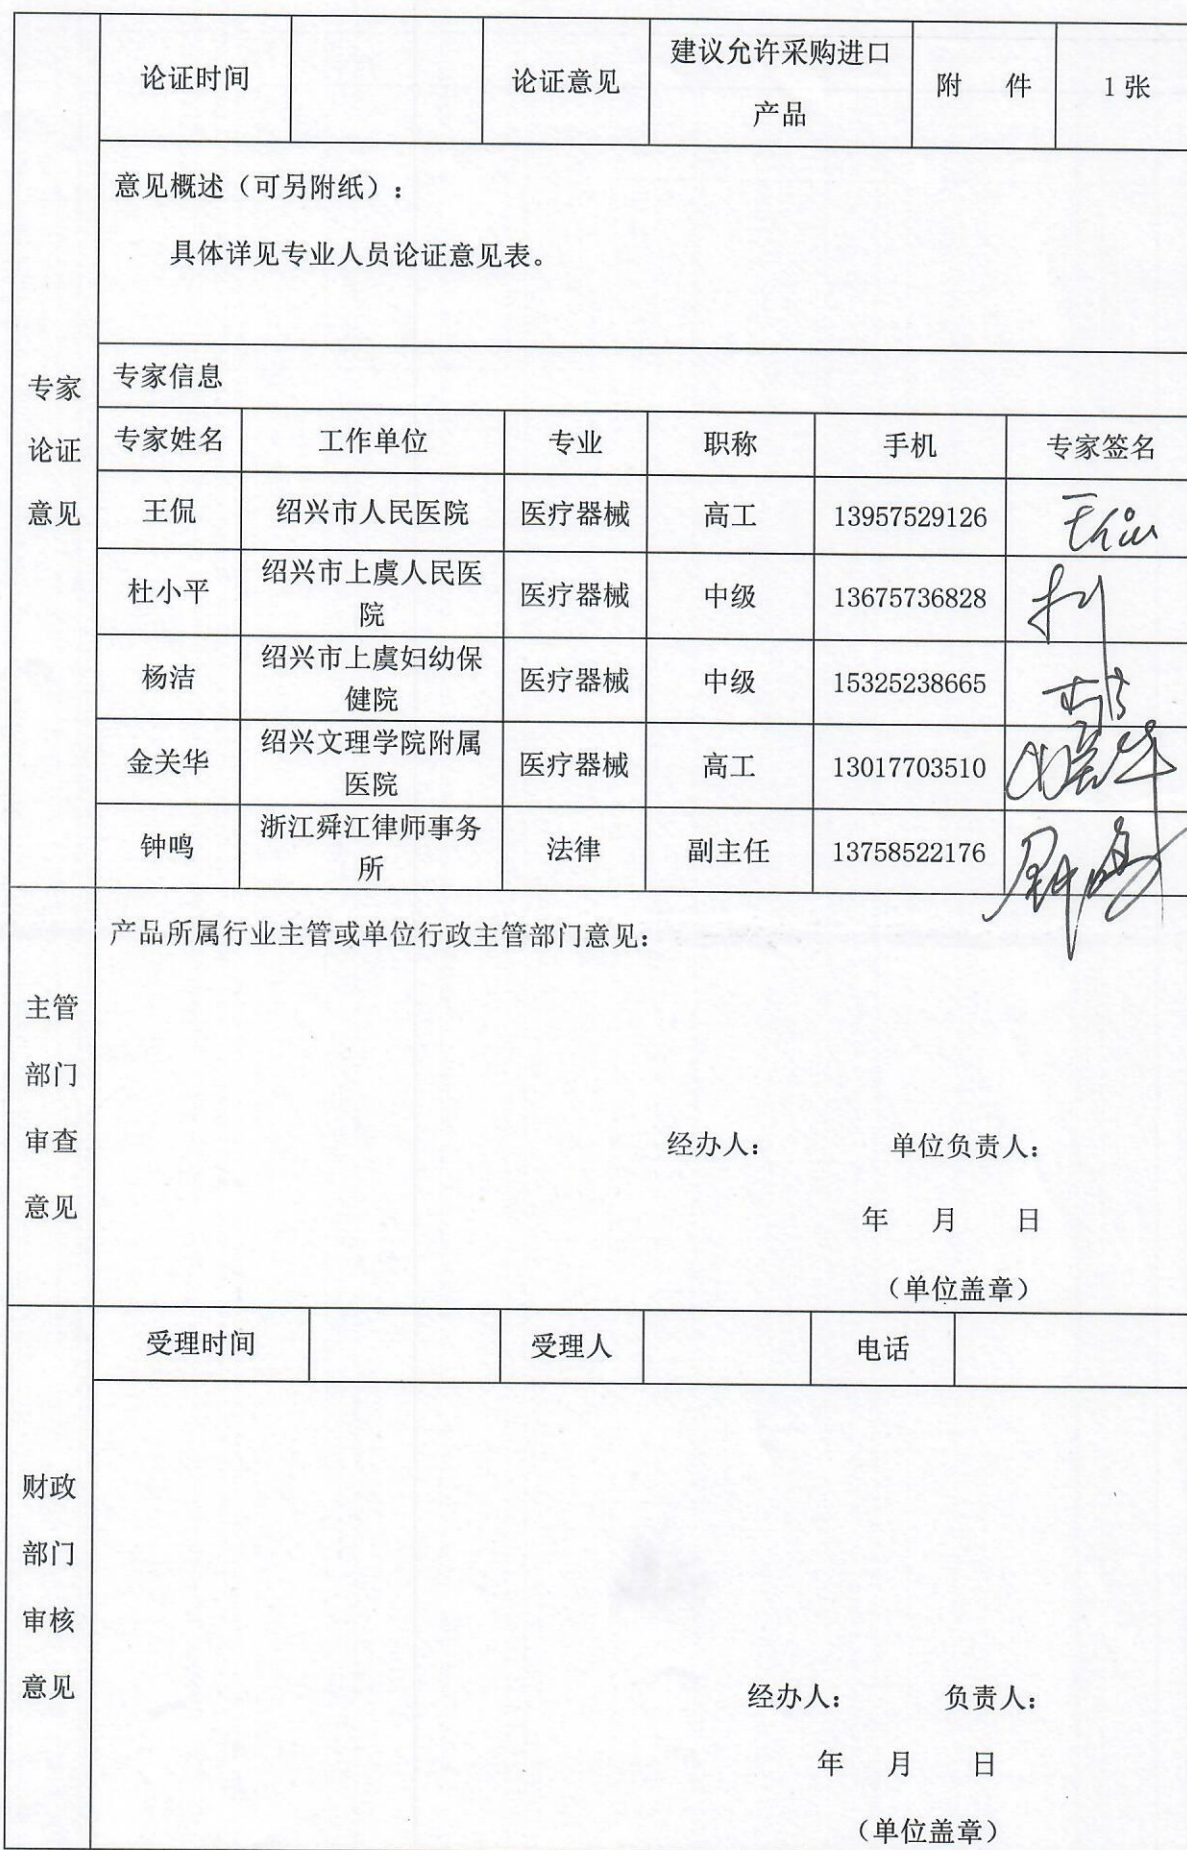 论证时间 论证意见 建议允许采购进口产品 附 件 1张
意见概述（可另附纸）：
具体详见专业人员论证意见表。
专家论证意见
专家信息
专家姓名 工作单位 专业 职称 手机 专家签名
王侃 绍兴市人民医院 医疗器械 高工 13957529126 王侃
杜小平 绍兴市上虞人民医院 医疗器械 中级 13675736828
杨洁 绍兴市上虞妇幼保健院 医疗器械 中级 15325238665 杨洁
金关华 绍兴文理学院附属医院 医疗器械 高工 13017703510 金关华
钟鸣 浙江舜江律师事务所 法律 副主任 13758522176 钟鸣
产品所属行业主管或单位行政主管部门意见：
主管部门审查意见
经办人： 单位负责人：
年 月 日
（单位盖章）
受理时间 受理人 电话
财政部门审核意见
经办人： 负责人：
年 月 日
（单位盖章）